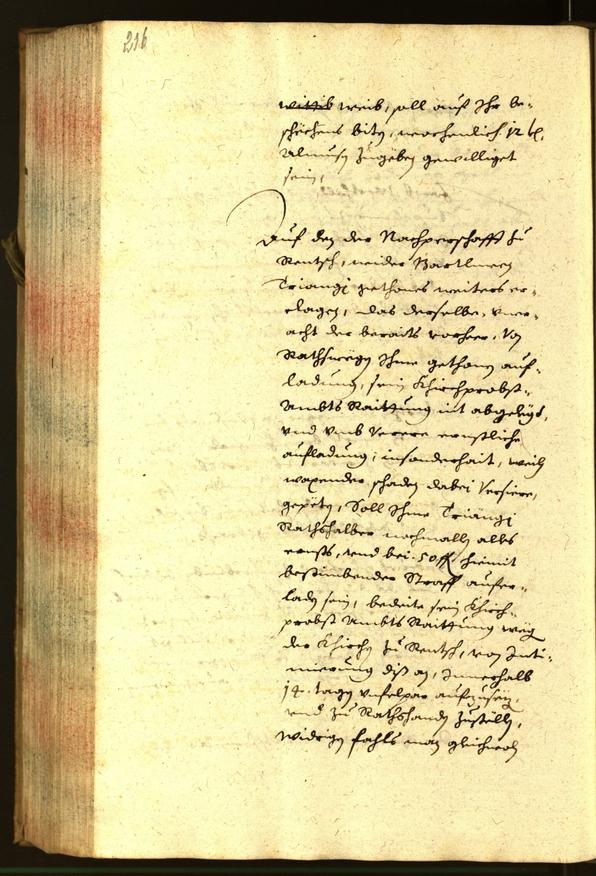 216
wittib weib, soll auf Ihr be-
schehens bitn, wochenlich 12 kr.
Almusn zugeben gewilliget
sein,
Auf den der Nachperschafft zu
Rentsch, wider Bartlmeen
Triangj gethones weiters er-
clagen, das derselbe, vner-
acht der beraits vorher, von
Rathswegen Ihme gethonen auf-
ladung, sein Khirchprobst-
Ambts Raittung nit abgelegt,
vnd vmb verere ernstliche
aufladung, insonderhait, weiln
waxender schaden dabei versiere,
gepeten, Soll Ihme Triangj
Rathshalber nochmalln alles
ernsts, vnd bei 50 fl. hiemit
bestimbender Straff aufer-
laden sein, bedeite sein Khirch-
probst Ambts Raittung weg
der Khirchen zu Rentsch, von Inti-
mierung diß an, Innerhalb
14. tagen vnfelpar aufzu
vnd zu Rathshanden zustelln,
widrigen fahls man gleichwol